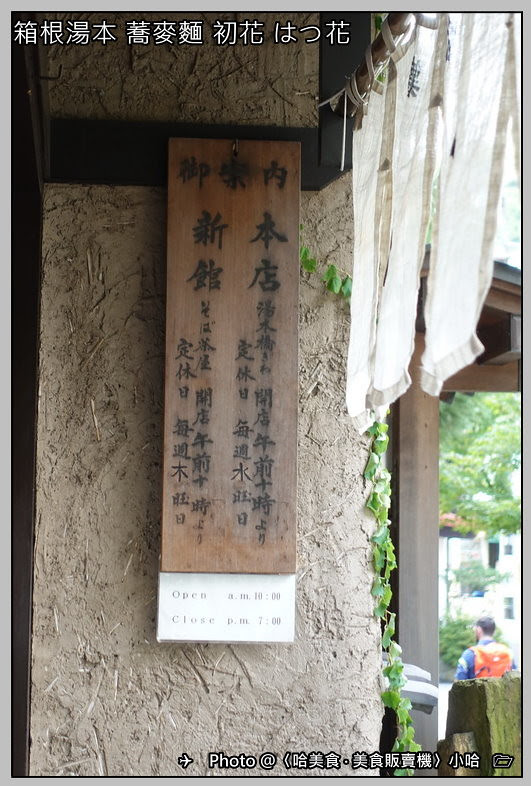 箱根湯本 蕎麥麵 初花 はつ花
御案内
本店 湯本橋きわ 開店午前十時より
定休日 毎週水旺日
新館 そば茶屋 開店午前十時より
定休日 毎週木旺日
Open a.m. 10:00
Close p.m. 7:00
Photo @〈哈美食·美食販賣機〉小哈